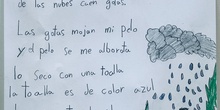 de las nubes caen gotas.
Las gotas mojan mi pelo
y el pelo se me alborota
lo seco con una toalla
la toalla es de color azul